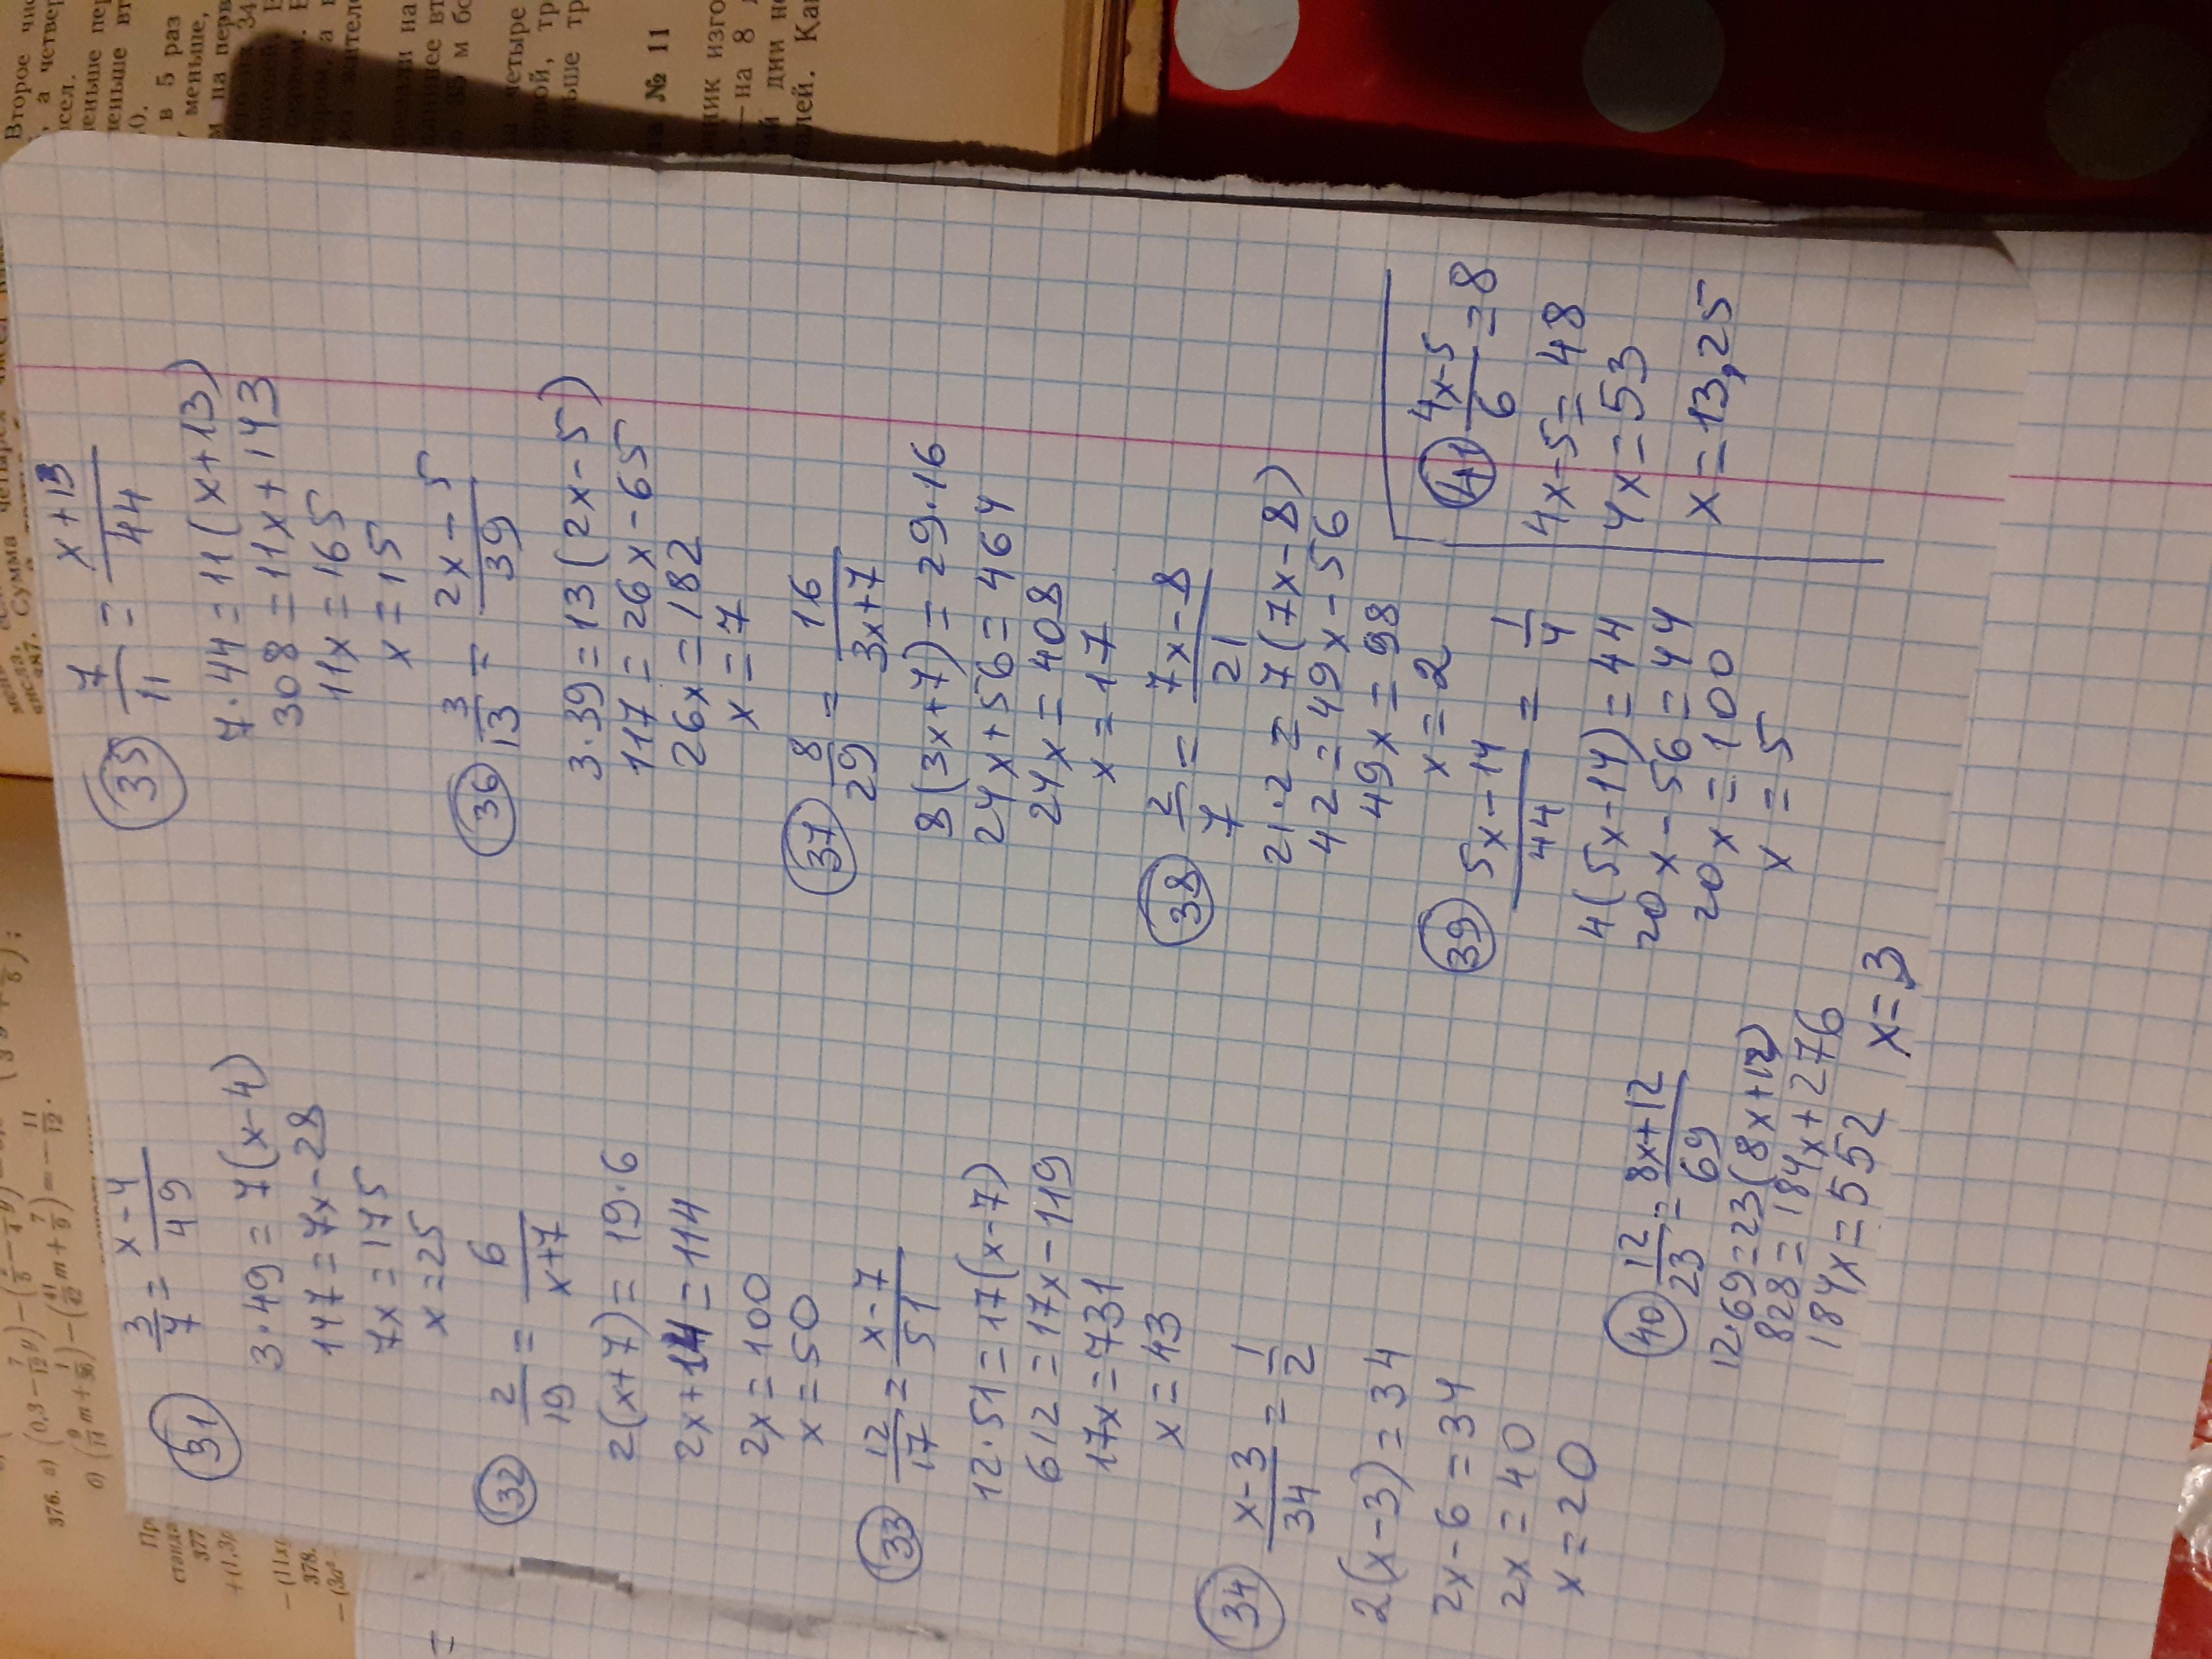 31 3/7 = x-4/49
3·49=7(x-4)
147=7x-28
7x=175
x=25
32 2/19 = 6/x+7
2(x+7)=19·6
2x+14=114
2x=100
x=50
33 12/17 = x-7/51
12·51=17(x-7)
612=17x-119
17x=731
x=43
34 x-3/34 = 1/2
2(x-3)=34
2x-6=34
2x=40
x=20
35 7/11 = x+13/44
7·44=11(x+13)
308=11x+143
11x=165
x=15
36 3/13 = 2x-5/39
3·39=13(2x-5)
117=26x-65
26x=182
x=7
37 8/29 = 16/3x+7
8(3x+7)=29·16
24x+56=464
24x=408
x=17
38 2/7 = 7x-8/21
21·2=7(7x-8)
42=49x-56
49x=98
x=2
39 5x-14/44 = 1/4
4(5x-14)=44
20x-56=44
20x=100
x=5
40 12/23 = 8x+12/69
12·69=23(8x+12)
828=184x+276
184x=552
x=3
41 4x-5/6 =8
4x-5=48
4x=53
x=13,25
=
Второе
, а четвер
сел.
в 5 раз
меньше,
м на перв
четыре
№ 11
на 8
487. Сумма четырёх
числа.
376. а)
б)
377
+(1,3
378.